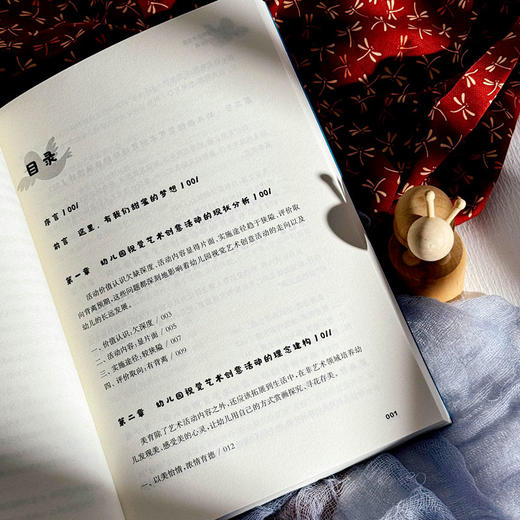 目录
序言 / 001
前言 这里，有我们甜蜜的梦想 / 001
第一章 幼儿园视觉艺术创意活动的现状分析 / 001
活动价值认识欠缺深度、活动内容显得片面、实施途径趋于狭隘、评价取
向背离预期，这些问题都深刻地影响着幼儿园视觉艺术创意活动的走向以及
幼儿的长远发展。
一、价值认识：欠深度 / 003
二、活动内容：显片面 / 005
三、实施途径：较狭隘 / 007
四、评价取向：有背离 / 009
第二章 幼儿园视觉艺术创意活动的理念建构 / 011
美育除了艺术活动内容之外，还应该拓展到生活中，在非艺术领域培养幼
儿发现美、感受美的心灵，让幼儿用自己的方式赏画探究、寻花存美。
一、以美怡情，浓情育德 / 012
001